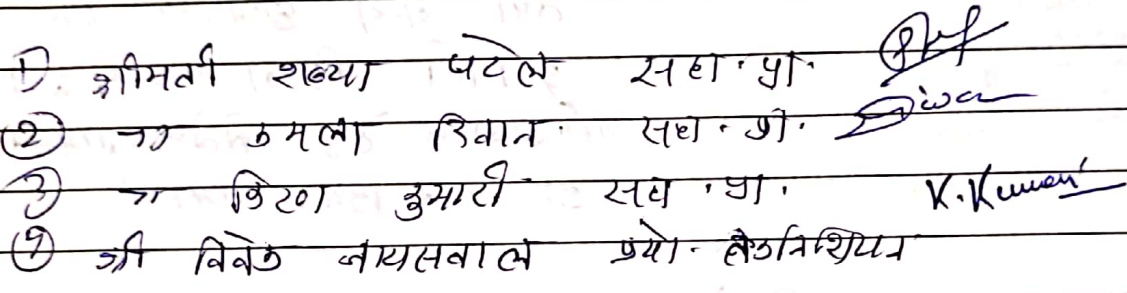 1) श्रीमती शब्या पटेल सहा. प्रा.
(2) " कमला दिवान सहा. प्रा. Diwan
3) " किरण कुमारी सहा. प्रा. K. Kumari
(4) श्री विवेक जायसवाल प्रयो. टेक्निशियन